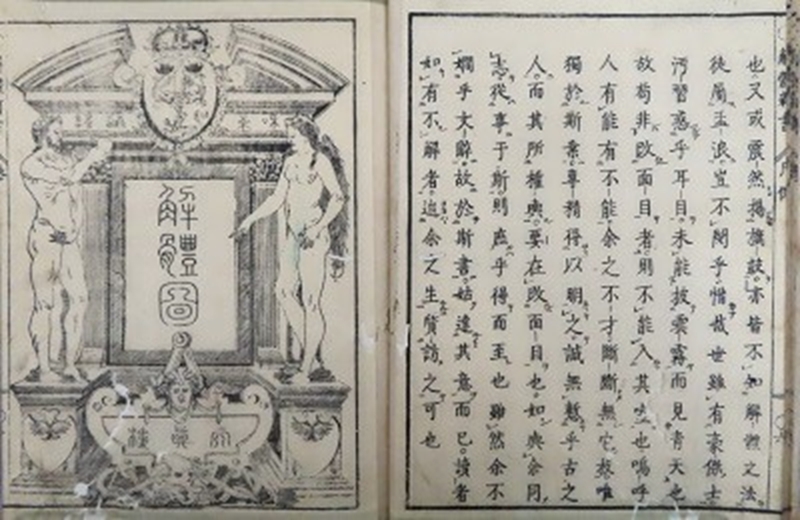 也又或震然揚旗鼓亦皆不知解體之法
徒屬孟浪豈不乎惜哉世雖有豪傑士
汚習惑乎耳目未能披雲霧而見青天也
故苟非改面目者則不能入其也嗚呼
人有能有不能余之不才斷斷無它技唯
獨於斯業專精得以明之誠無慙乎古之
人而其所權輿要在改面目也如與余同
志從事于斯則庶乎得而至也雖然余不
嫺乎文辭故於斯書姑達其意而已讀者
如有不解者迨余之生質訪之可也
解體圖